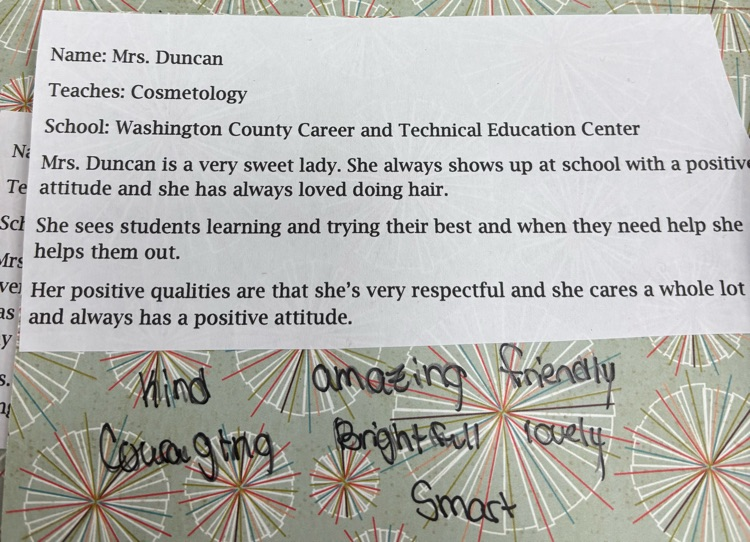 Name: Mrs. Duncan
Teaches: Cosmetology
School: Washington County Career and Technical Education Center
Mrs. Duncan is a very sweet lady. She always shows up at school with a positive
attitude and she has always loved doing hair.
She sees students learning and trying their best and when they need help she
helps them out.
Her positive qualities are that she's very respectful and she cares a whole lot
and always has a positive attitude.
Kind amazing friendly
Couraging Brightfull lovely
Smart